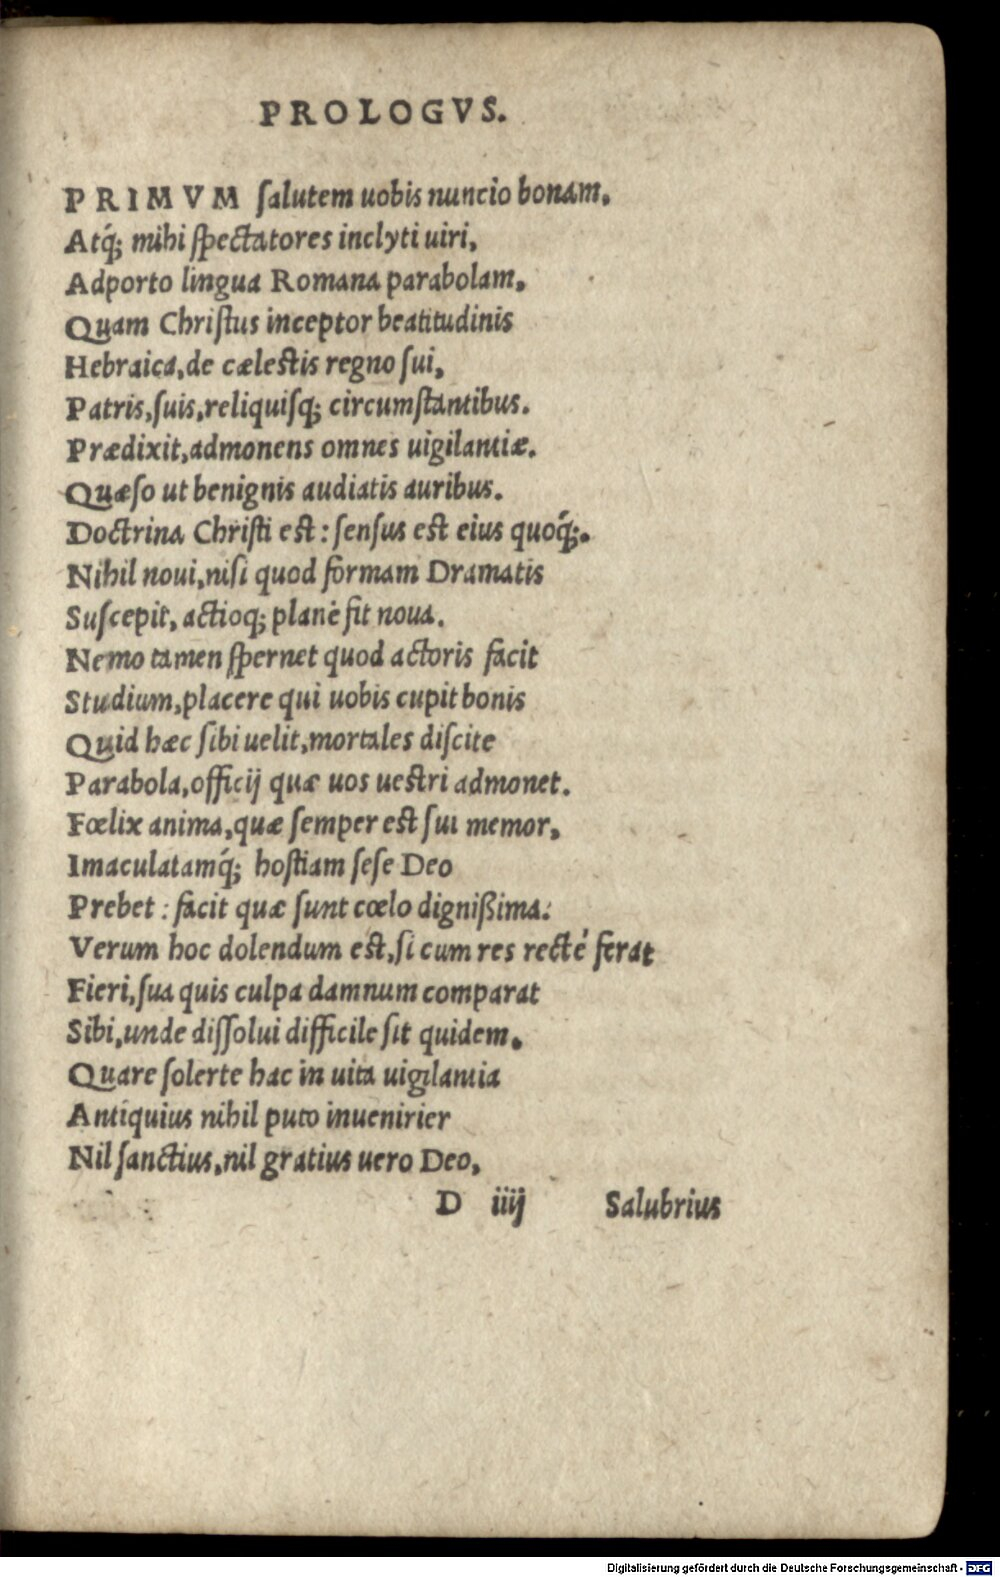 PROLOGVS.
PRIMVM ſalutem uobis nuncio bonam.
Atq́; mihi ſpectatores inclyti uiri,
Adporto lingua Romana parabolam,
Quam Chriſtus inceptor beatitudinis
Hebraica, de cæleſtis regno ſui,
Patris, ſuis, reliquiſq; circumſtantibus.
Prædixit, admonens omnes uigilantiæ.
Quæſo ut benignis audiatis auribus.
Doctrina Chriſti eſt: ſenſus eſt eius quoq́;.
Nihil noui, niſi quod formam Dramatis
Suſcepit, actioq; planè fit noua.
Nemo tamen ſpernet quod actoris facit
Studium, placere qui uobis cupit bonis
Quid hæc ſibi uelit, mortales diſcite
Parabola, officij quæ uos ueſtri admonet.
Fœlix anima, quæ ſemper eſt ſui memor,
Imaculatamq́; hoſtiam ſeſe Deo
Prebet: facit quæ ſunt cœlo dignißima.
Verum hoc dolendum eſt, ſi cum res recté ferat
Fieri, ſua quis culpa damnum comparat
Sibi, unde diſſolui difficile ſit quidem.
Quare ſolerte hac in uita uigilantia
Antiquius nihil puto inuenirier
Nil ſanctius, nil gratius uero Deo,
D iiij Salubrius
Digitalisierung gefördert durch die Deutsche Forschungsgemeinschaft - DFG